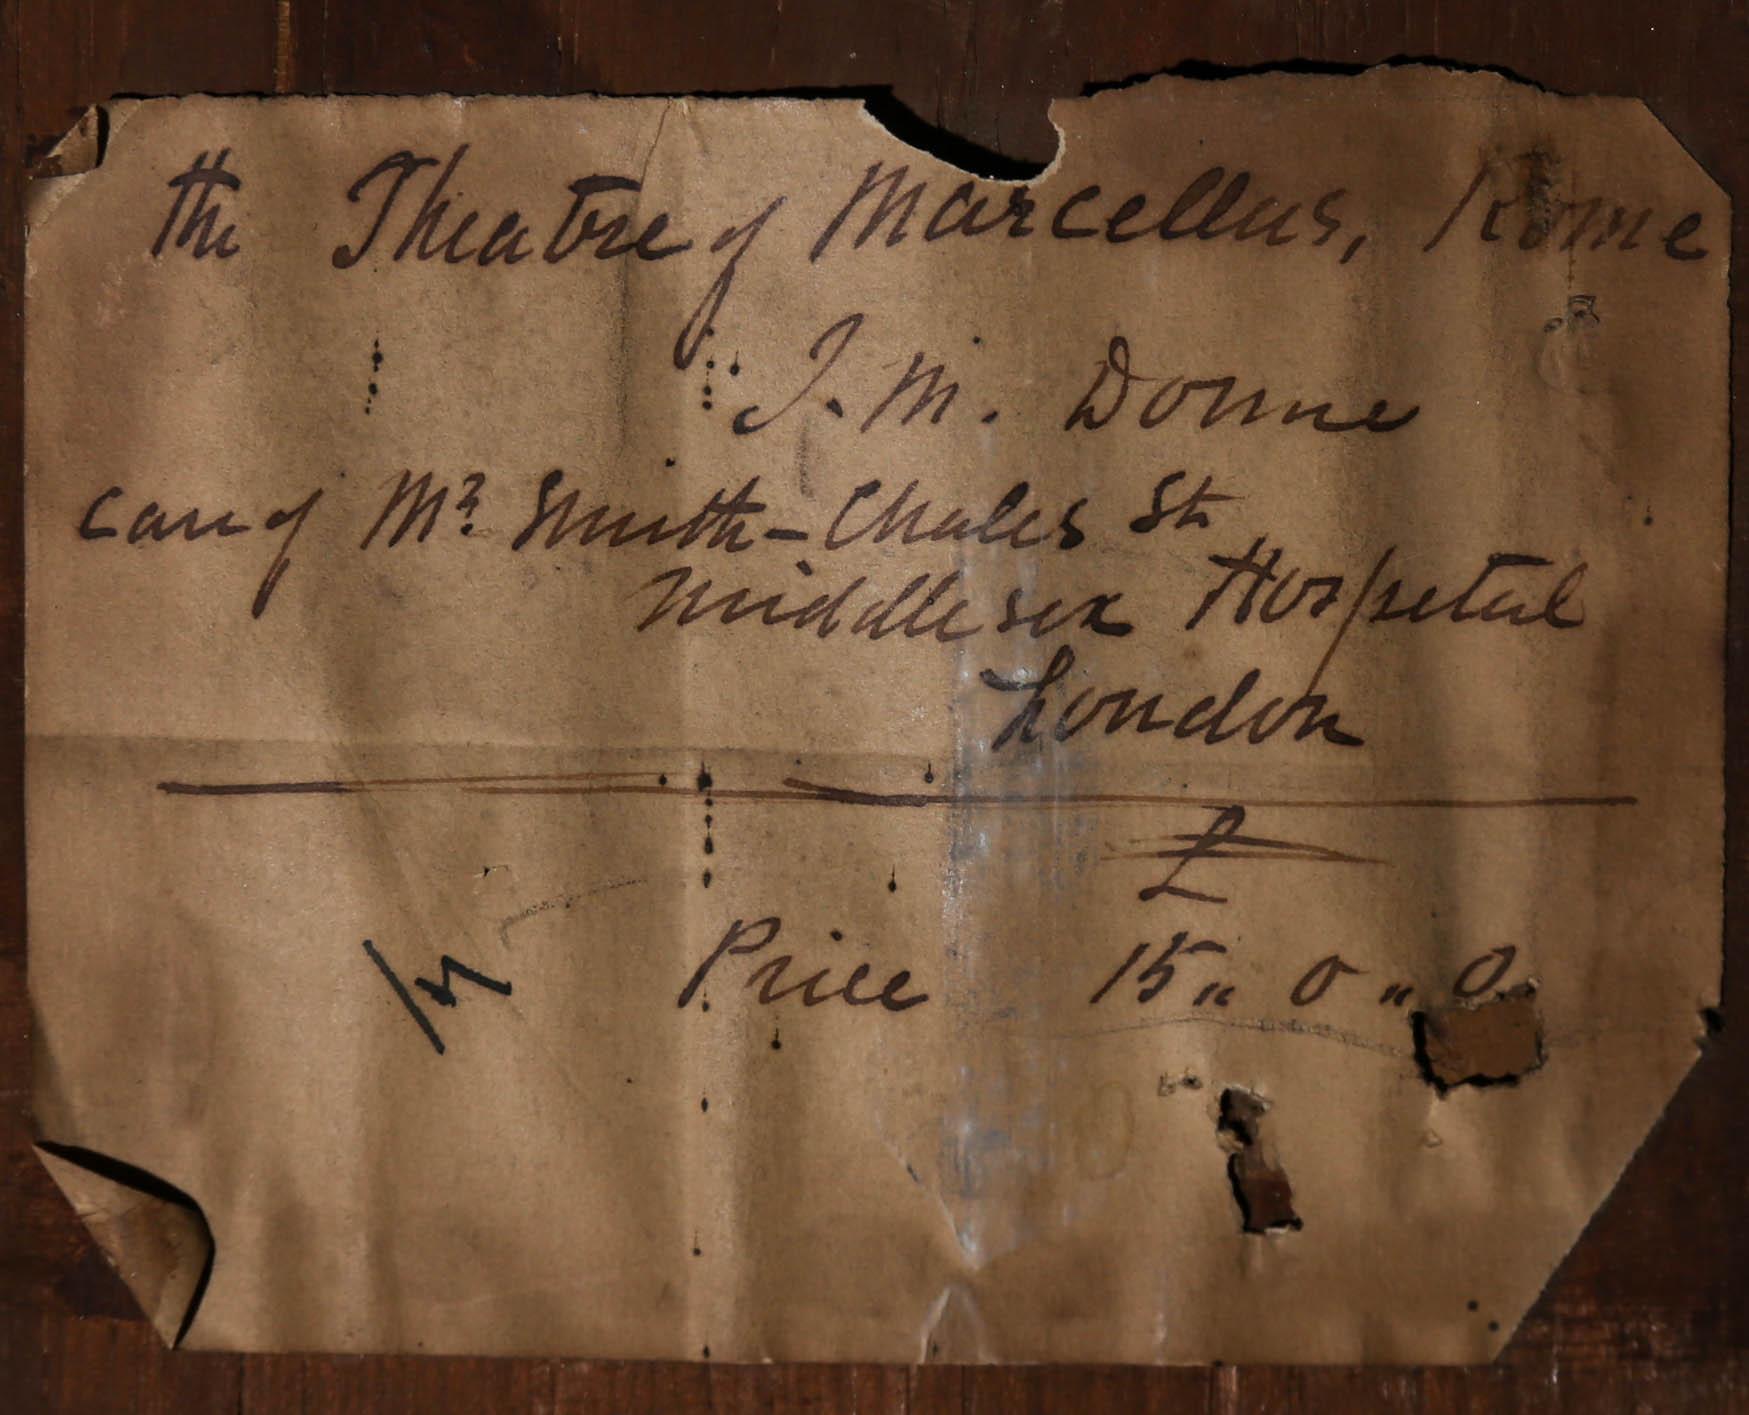 the Theatre of Marcellus, Rome
J. M. Donne
care of Mr Smith - Chales St
Middlesex Hospital
London
£
Price 15 " 0 " 0